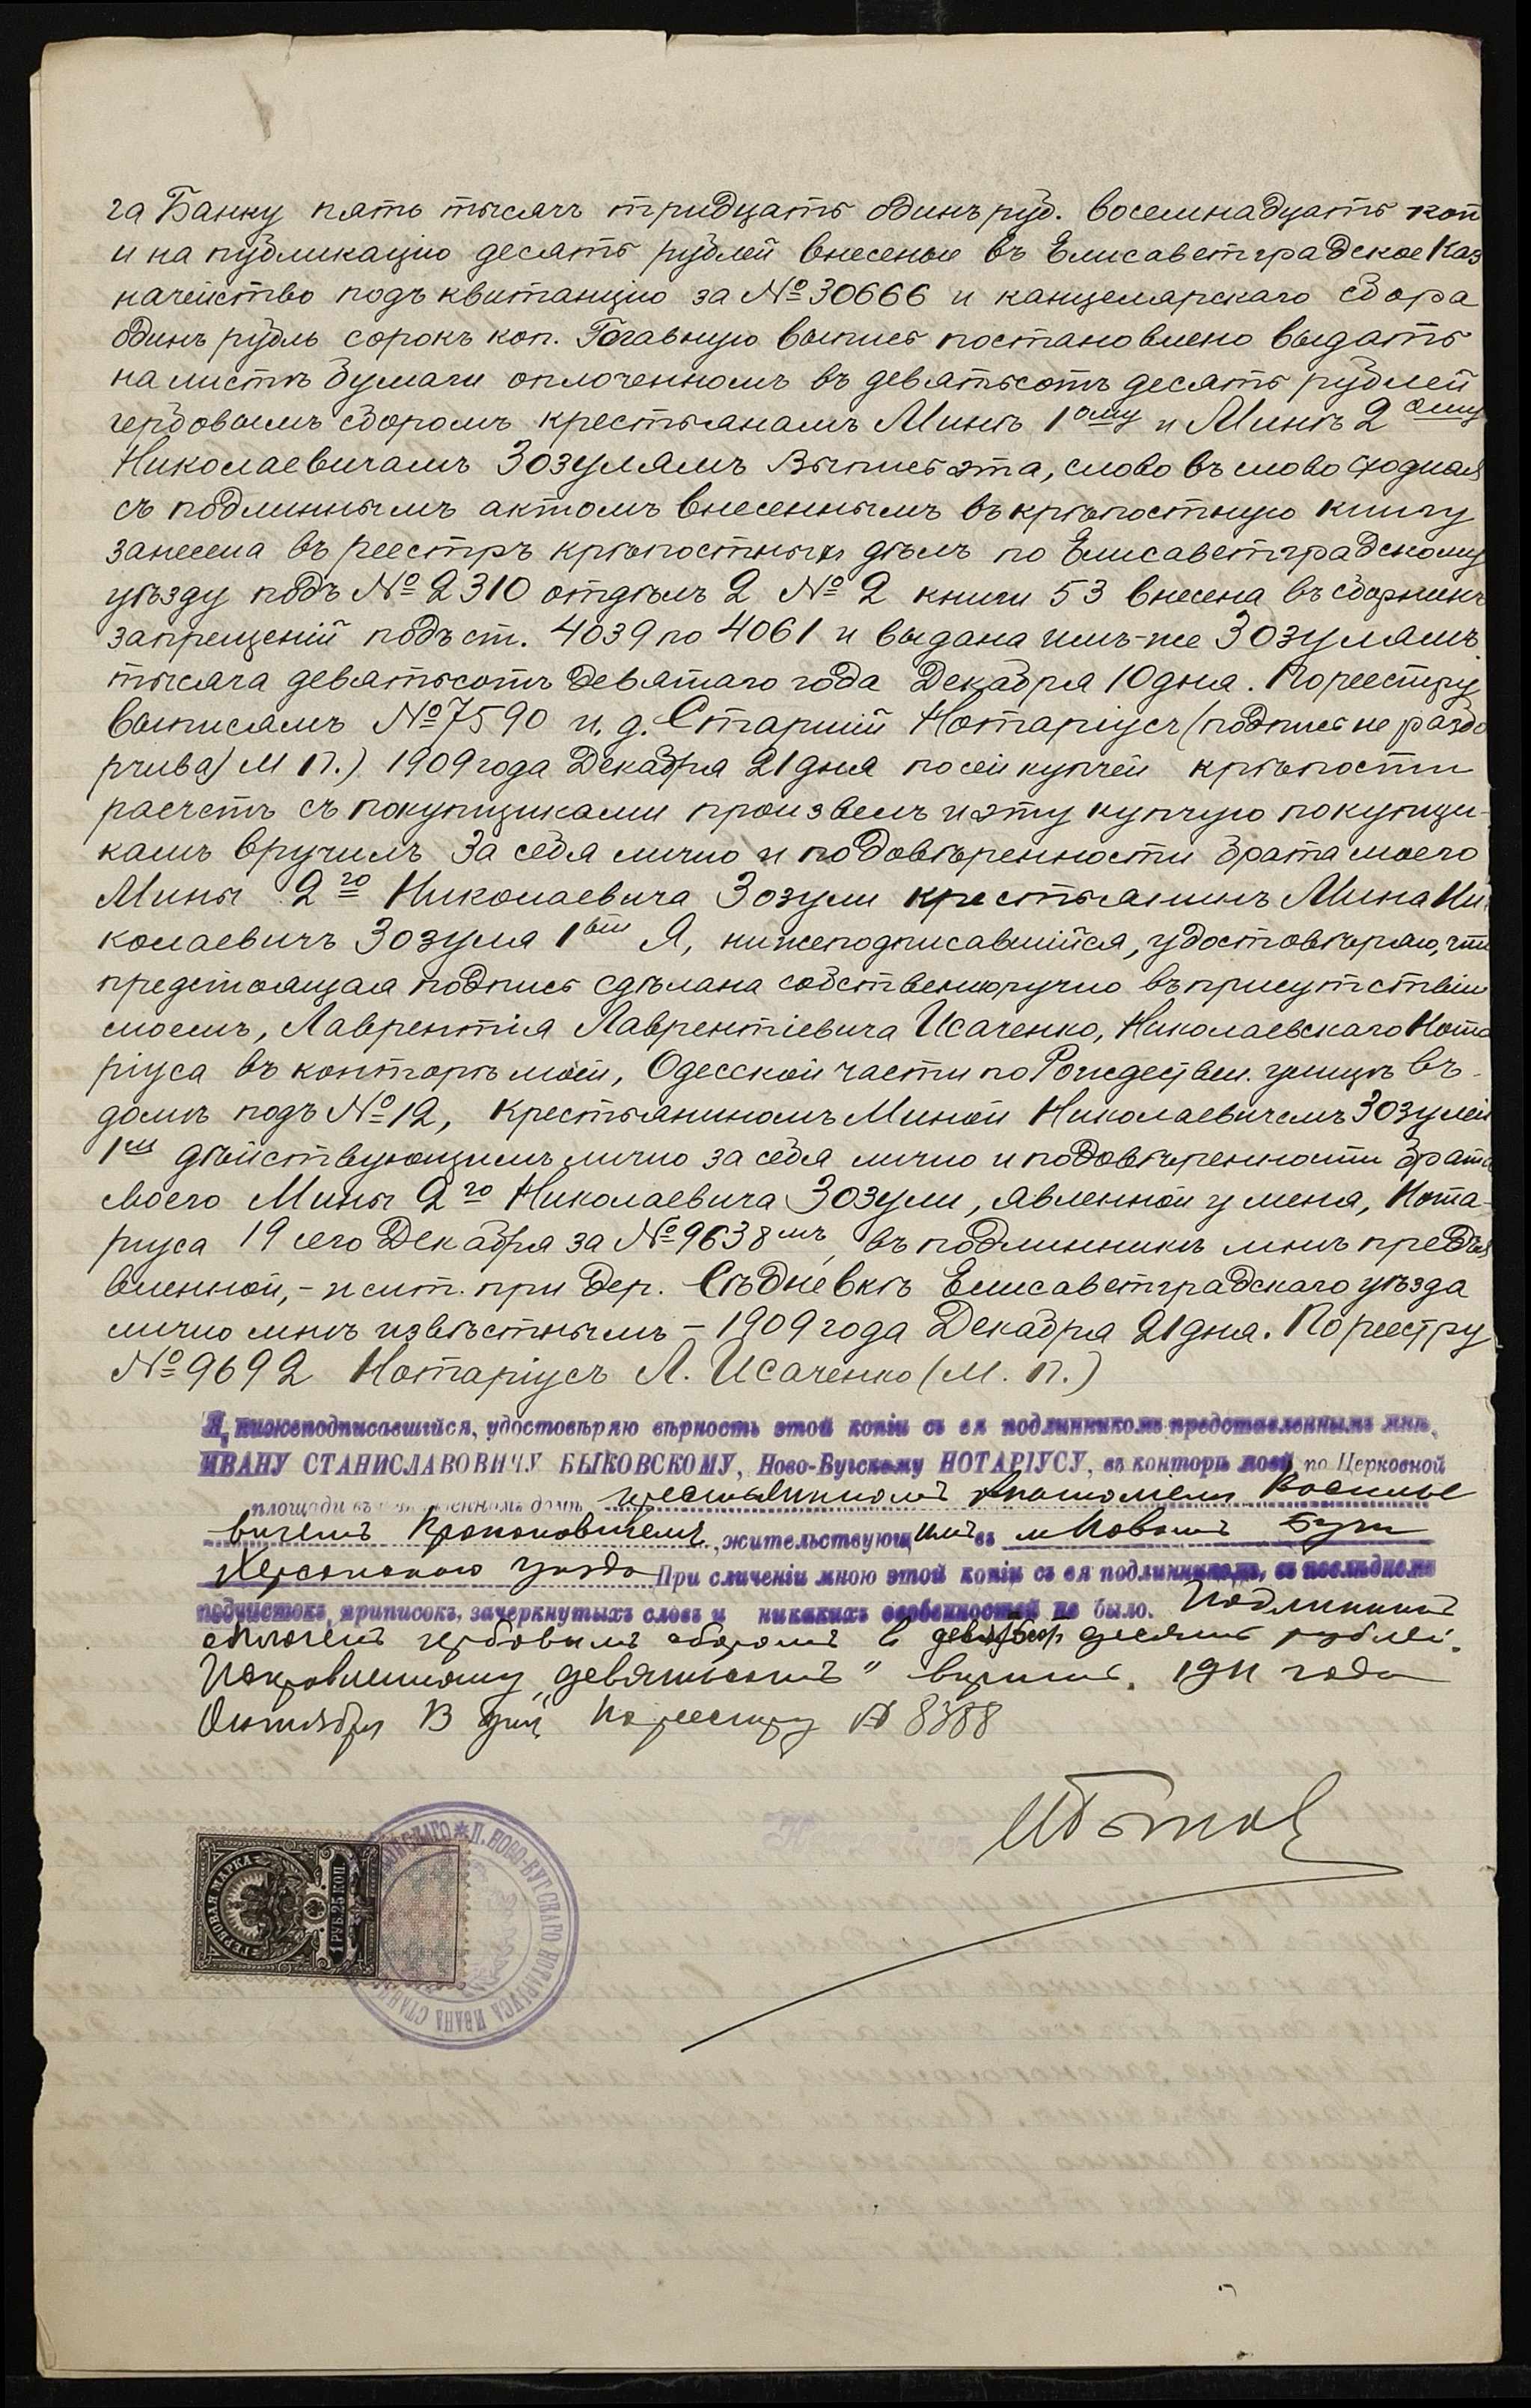 га Банку пять тысячъ тридцать одинъ руб. восемнадцать коп
и на публикацію десять рублей внесены въ Елисаветградское Каз
начейство подъ квитанцію за № 30666 и канцелярскаго сбора
одинъ рубль сорокъ коп. Главную выпись постановлено выдать
на листѣ бумаги оплоченномъ въ девятьсотъ десять рублей
гербовымъ сборомъ крестьянамъ Минѣ 1ому и Минѣ 2ому
Николаевичамъ Зозулямъ Выпись эта, слово въ слово сходная
съ подлиннымъ актомъ внесеннымъ въ крѣпостную книгу
занесена въ реестръ крѣпостныхъ дѣлъ по Елисаветградскому
уѣзду подъ № 2310 отдѣлъ 2 № 2 книги 53 внесена въ сборникъ
запрещеній подъ ст. 4039 по 4061 и выдана имъ-же Зозулямъ
тысяча девятьсотъ девятаго года Декабря 10 дня. По реестру
выписямъ № 7590 и. д. Старшій Нотаріусъ (подпись не разбо
рчива) М П.) 1909 года Декабря 21 дня по сей купчей крѣпости
расчетъ съ покупщиками произвелъ и эту купчую покупщи-
камъ вручилъ За себя лично и по довѣренности брата моего
Мины 2го Николаевича Зозули крестьянинъ Мина Ни
колаевичъ Зозуля 1ый Я, нижеподписавшійся, удостовѣряю, что
предстоящая подпись сдѣлана собственноручно въ присутствіи
моемъ, Лаврентія Лаврентіевича Исаченко, Николаевскаго Нота
ріуса въ конторѣ моей, Одесской части по Рождествен. улицѣ въ
домѣ подъ № 12, крестьяниномъ Миной Николаевичемъ Зозулей
1мъ дѣйствующимъ лично за себя лично и по довѣренности брата
моего Мины 2го Николаевича Зозули, явленной у меня, Нота-
ріуса 19 сего Декабря за № 9638мъ, въ подлинникѣ мнѣ предъя
вленной,- и жит. при дер. Сѣдневкѣ Елисаветградскаго уѣзда
лично мнѣ извѣстнымъ - 1909 года Декабря 21 дня. По реестру
№ 9692 Нотаріусъ Л. Исаченко (М. П.)
Я, нижеподписавшійся, удостовѣряю вѣрность этой копіи съ ея подлинникомъ представленнымъ мнѣ,
ИВАНУ СТАНИСЛАВОВИЧУ БЫКОВСКОМУ, Ново-Бугскому НОТАРІУСУ, въ конторѣ моей по Церковной
площади въ домѣ, крестьяниномъ
вичемъ Прокоповичемъ, жительствующимъ въ м Новомъ Бугѣ
Херсонскаго уѣзда При сличеніи мною этой копіи съ ея подлинникомъ, въ послѣднемъ
подчистокъ, приписокъ, зачеркнутыхъ словъ и никакихъ особенностей не было. Подлинный
оплоченъ гербовымъ сборомъ в девятьсот десять рублей.
Исправленному "девятьсотъ" вѣрить. 1911 года
Октября 13 дня По реестру № 8388
ГЕРБОВАЯ МАРКА
1 РУБ. 25 КОП.
П. НОВО-БУГСКАГО НОТАРІУСА ИВАНА